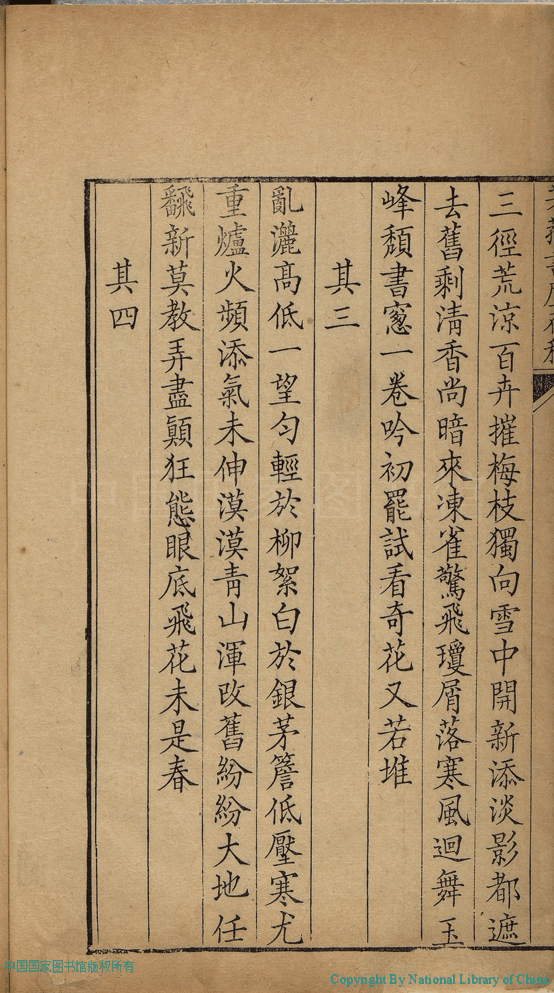 三徑荒涼百卉摧梅枝獨向雪中開新添淡影都遮
去舊剩清香尚暗來凍雀驚飛瓊屑落寒風迴舞玉
峰頹書窻一卷吟初罷試看奇花又若堆
其三
亂灑高低一望勻輕於柳絮白於銀茅簷低壓寒尤
重爐火頻添氣未伸漠漠青山渾改舊紛紛大地任
翻新莫教弄盡顛狂態眼底飛花未是春
其四
中国国家图书馆版权所有
Copyright By National Library of China